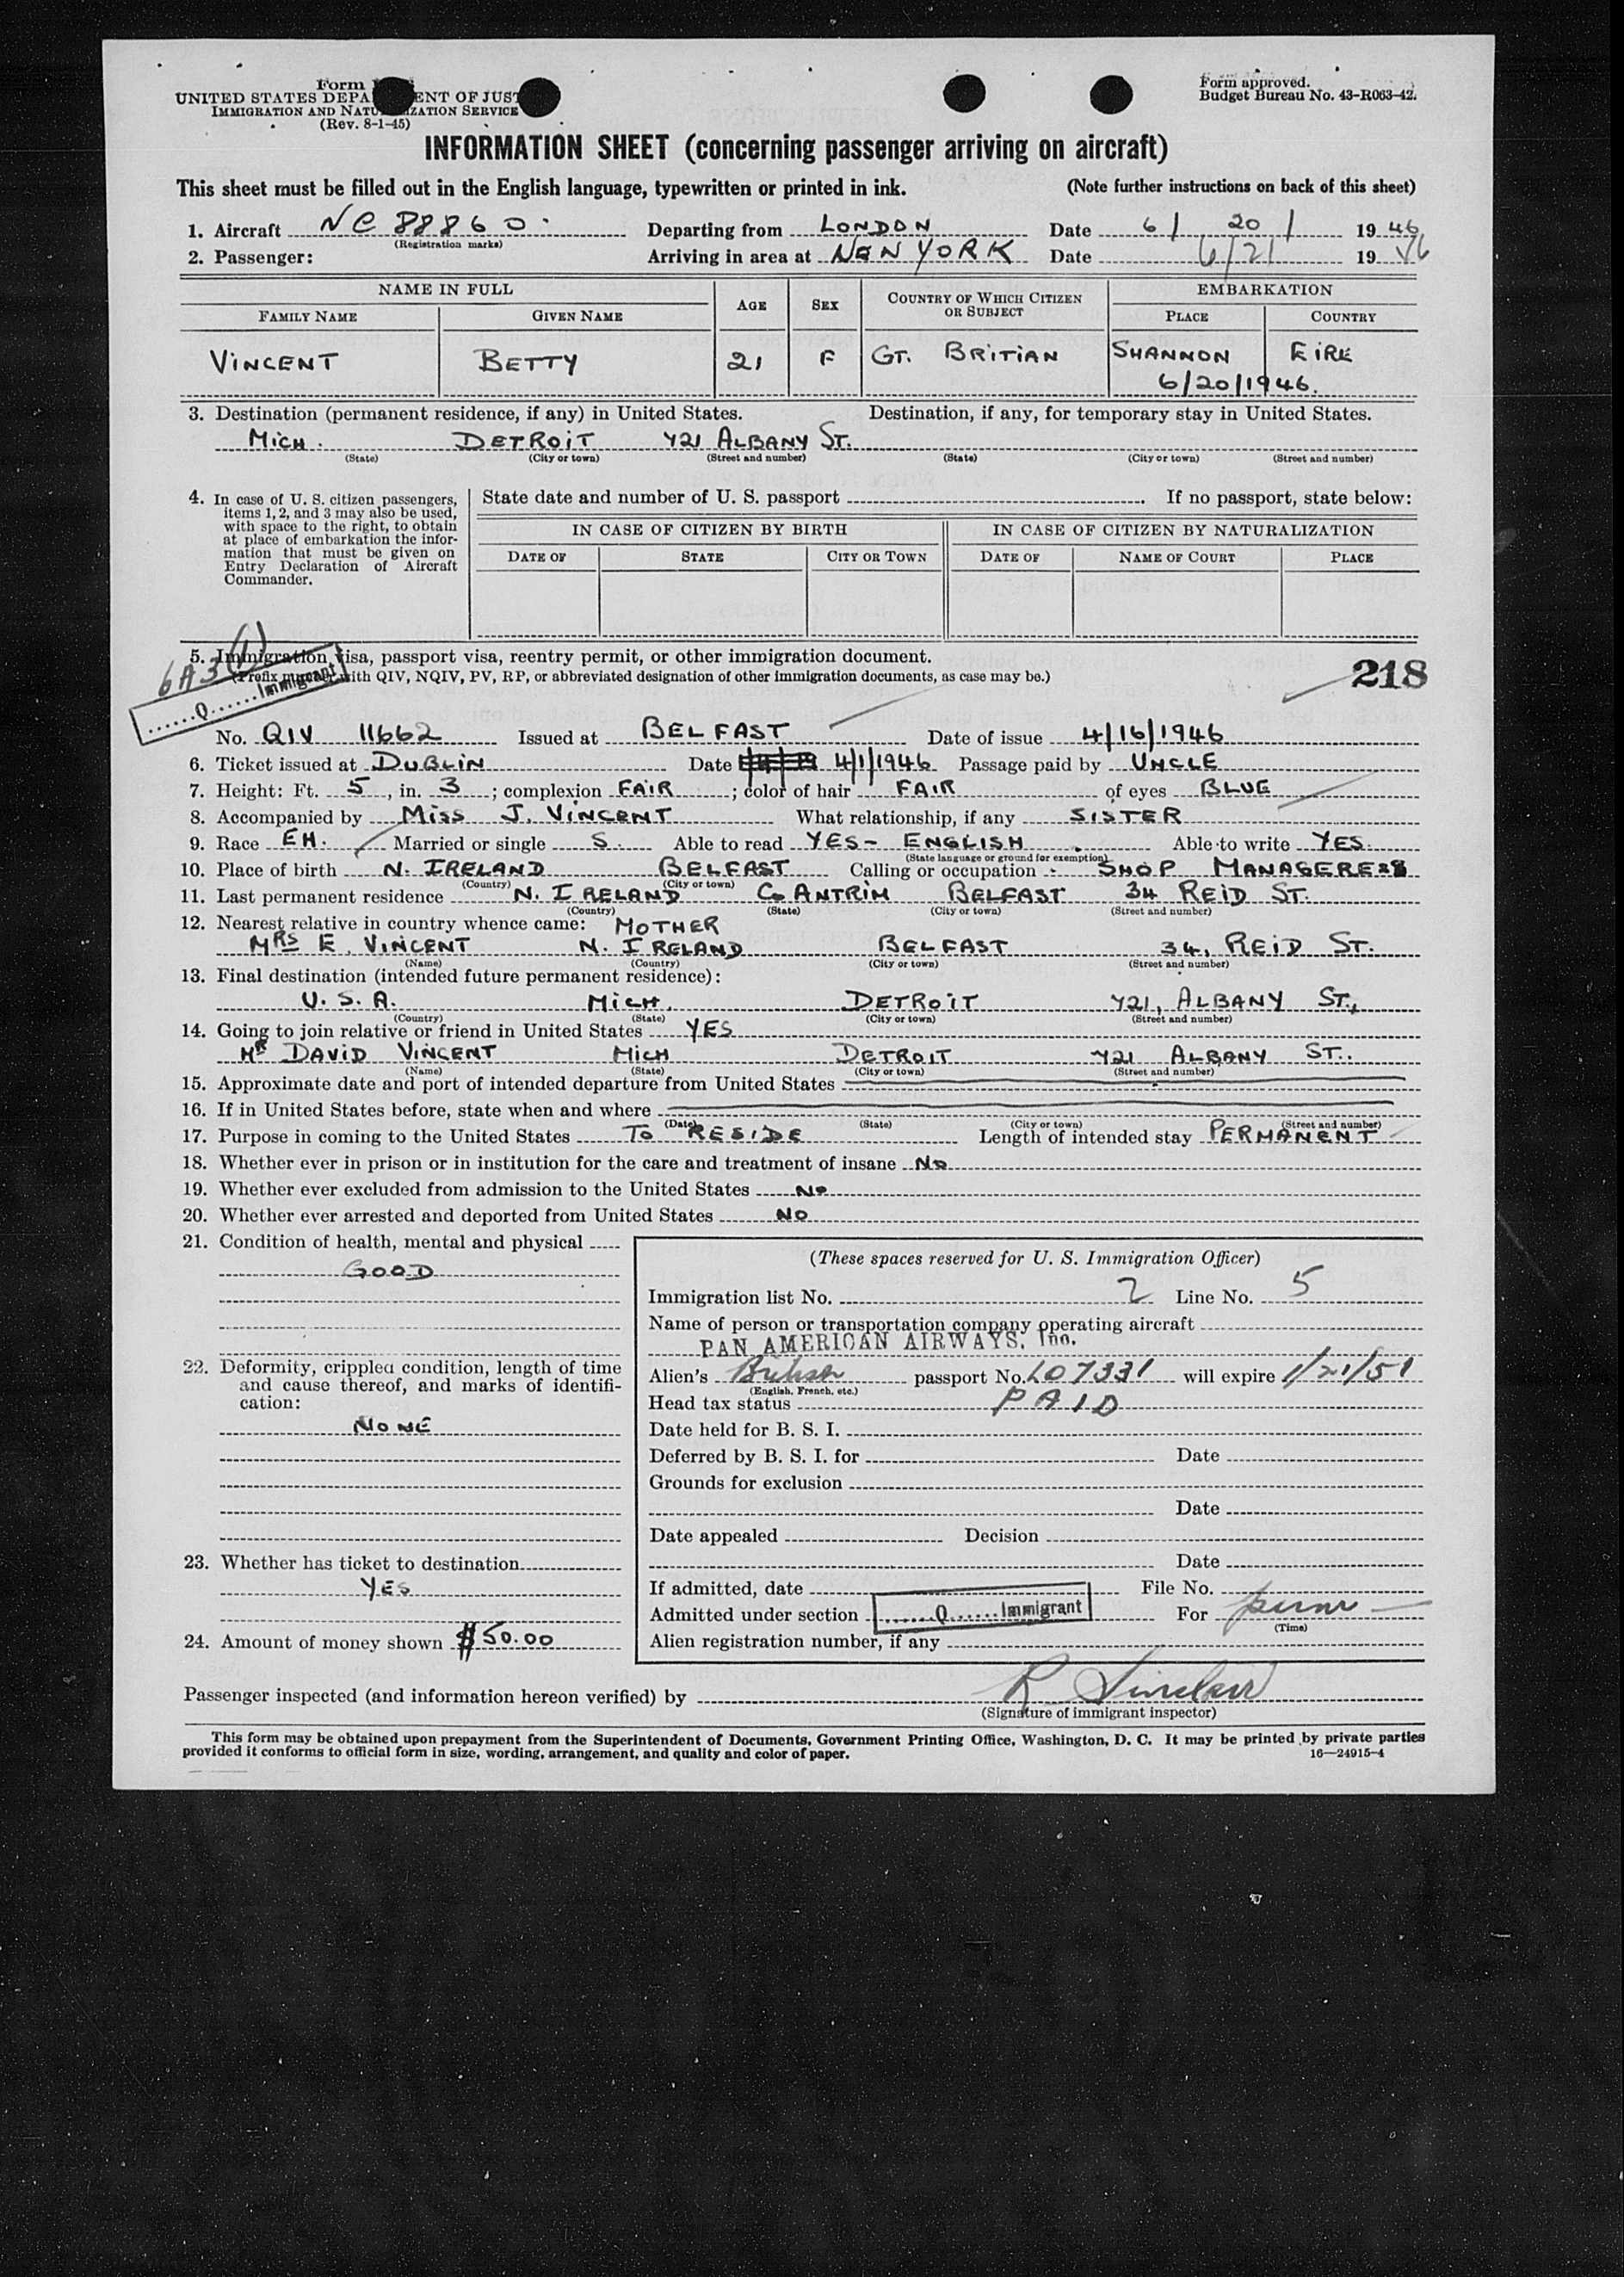 Form
UNITED STATES DEPA ENT OF JUST
IMMIGRATION AND NATU IZATION SERVICE
(Rev. 8-1-45)
Form approved.
Budget Bureau No. 43-R063-42.
INFORMATION SHEET (concerning passenger arriving on aircraft)
This sheet must be filled out in the English language, typewritten or printed in ink. (Note further instructions on back of this sheet)
1. Aircraft NC 88860 Departing from LONDON Date 6/ 20/ 1946
(Registration marks)
2. Passenger: Arriving in area at NEW YORK Date 6/21 1946
NAME IN FULL AGE SEX COUNTRY OF WHICH CITIZEN OR SUBJECT EMBARKATION
FAMILY NAME GIVEN NAME PLACE COUNTRY
VINCENT BETTY 21 F GT. BRITIAN SHANNON EIRE
6/20/1946.
3. Destination (permanent residence, if any) in United States. Destination, if any, for temporary stay in United States.
MICH. DETROIT 721 ALBANY ST.
(State) (City or town) (Street and number) (State) (City or town) (Street and number)
4. In case of U. S. citizen passengers, items 1, 2, and 3 may also be used, with space to the right, to obtain at place of embarkation the information that must be given on Entry Declaration of Aircraft Commander.
State date and number of U. S. passport . If no passport, state below:
IN CASE OF CITIZEN BY BIRTH IN CASE OF CITIZEN BY NATURALIZATION
DATE OF STATE CITY OR TOWN DATE OF NAME OF COURT PLACE
6A3(1)
5. Immigration visa, passport visa, reentry permit, or other immigration document.
(Prefix number with QIV, NQIV, PV, RP, or abbreviated designation of other immigration documents, as case may be.)
......Q......Immigrant
218
No. QIV 11662 Issued at BELFAST Date of issue 4/16/1946
6. Ticket issued at DUBLIN Date 4/1/1946 Passage paid by UNCLE
7. Height: Ft. 5, in. 3; complexion FAIR; color of hair FAIR of eyes BLUE
8. Accompanied by MISS J. VINCENT What relationship, if any SISTER
9. Race EH. Married or single S. Able to read YES- ENGLISH Able to write YES.
(State language or ground for exemption)
10. Place of birth N. IRELAND BELFAST Calling or occupation SHOP MANAGERESS
(Country) (City or town)
11. Last permanent residence N. IRELAND Co ANTRIM BELFAST 34 REID ST.
(Country) (State) (City or town) (Street and number)
12. Nearest relative in country whence came: MOTHER
MRS E. VINCENT N. IRELAND BELFAST 34, REID ST.
(Name) (Country) (City or town) (Street and number)
13. Final destination (intended future permanent residence):
U. S. A. MICH. DETROIT 721, ALBANY ST.,
(Country) (State) (City or town) (Street and number)
14. Going to join relative or friend in United States YES
MR DAVID VINCENT MICH DETROIT 721 ALBANY ST..
(Name) (State) (City or town) (Street and number)
15. Approximate date and port of intended departure from United States
16. If in United States before, state when and where
(Date) (State) (City or town) (Street and number)
17. Purpose in coming to the United States TO RESIDE Length of intended stay PERMANENT
18. Whether ever in prison or in institution for the care and treatment of insane NO
19. Whether ever excluded from admission to the United States NO
20. Whether ever arrested and deported from United States NO
21. Condition of health, mental and physical
GOOD
22. Deformity, crippled condition, length of time and cause thereof, and marks of identification:
NONE
23. Whether has ticket to destination
YES
24. Amount of money shown $50.00
(These spaces reserved for U. S. Immigration Officer)
Immigration list No. 2 Line No. 5
Name of person or transportation company operating aircraft
PAN AMERICAN AIRWAYS, Inc.
Alien's British passport No. L07331 will expire 1/21/51
(English, French, etc.)
Head tax status PAID
Date held for B. S. I.
Deferred by B. S. I. for Date
Grounds for exclusion
Date
Date appealed Decision
Date
If admitted, date File No.
Admitted under section ......Q......Immigrant For perm
(Time)
Alien registration number, if any
Passenger inspected (and information hereon verified) by R Sinclair
(Signature of immigrant inspector)
This form may be obtained upon prepayment from the Superintendent of Documents, Government Printing Office, Washington, D. C. It may be printed by private parties
provided it conforms to official form in size, wording, arrangement, and quality and color of paper. 16—24915-4